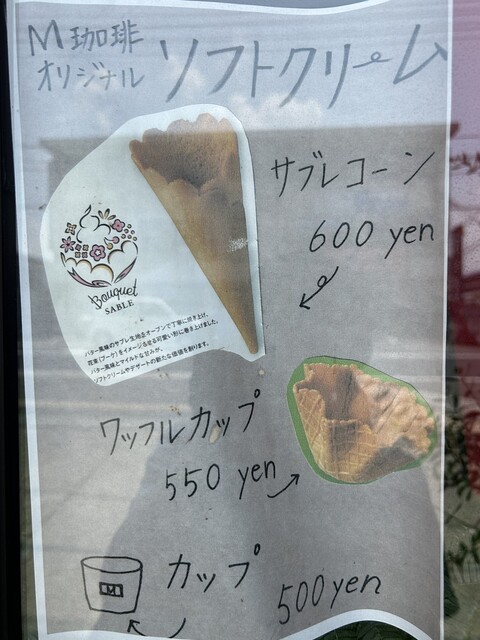 M珈琲
オリジナル
ソフトクリーム
サブレコーン
600 yen
Bouquet
SABLE
バター風味のサブレ生地をオーブンで丁寧に焼き上げ、
花束(ブーケ)をイメージさせる可愛い形に巻き上げました。
バター風味とマイルドな甘みが、
ソフトクリームやデザートの新たな価値を創ります。
ワッフルカップ
550 yen
M
カップ
500yen